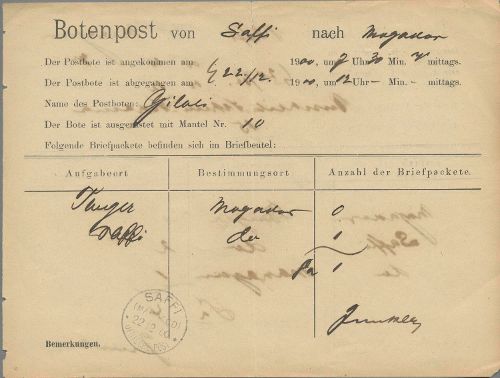 Botenpost von Saffi nach Mogador
Der Postbote ist angekommen am 1900, um 7 Uhr 30 Min. mittags.
Der Postbote ist abgegangen am 22/12. 1900, um 12 Uhr - Min. - mittags.
Name des Postboten: Gilali
Der Bote ist ausgerüstet mit Mantel Nr. 10
Folgende Briefpackete befinden sich im Briefbeutel:
Aufgabeort Bestimmungsort Anzahl der Briefpackete.
Tanger Mogador 0
Saffi do 1
Pa 1
SAFFI
22 12 00
Bemerkungen.